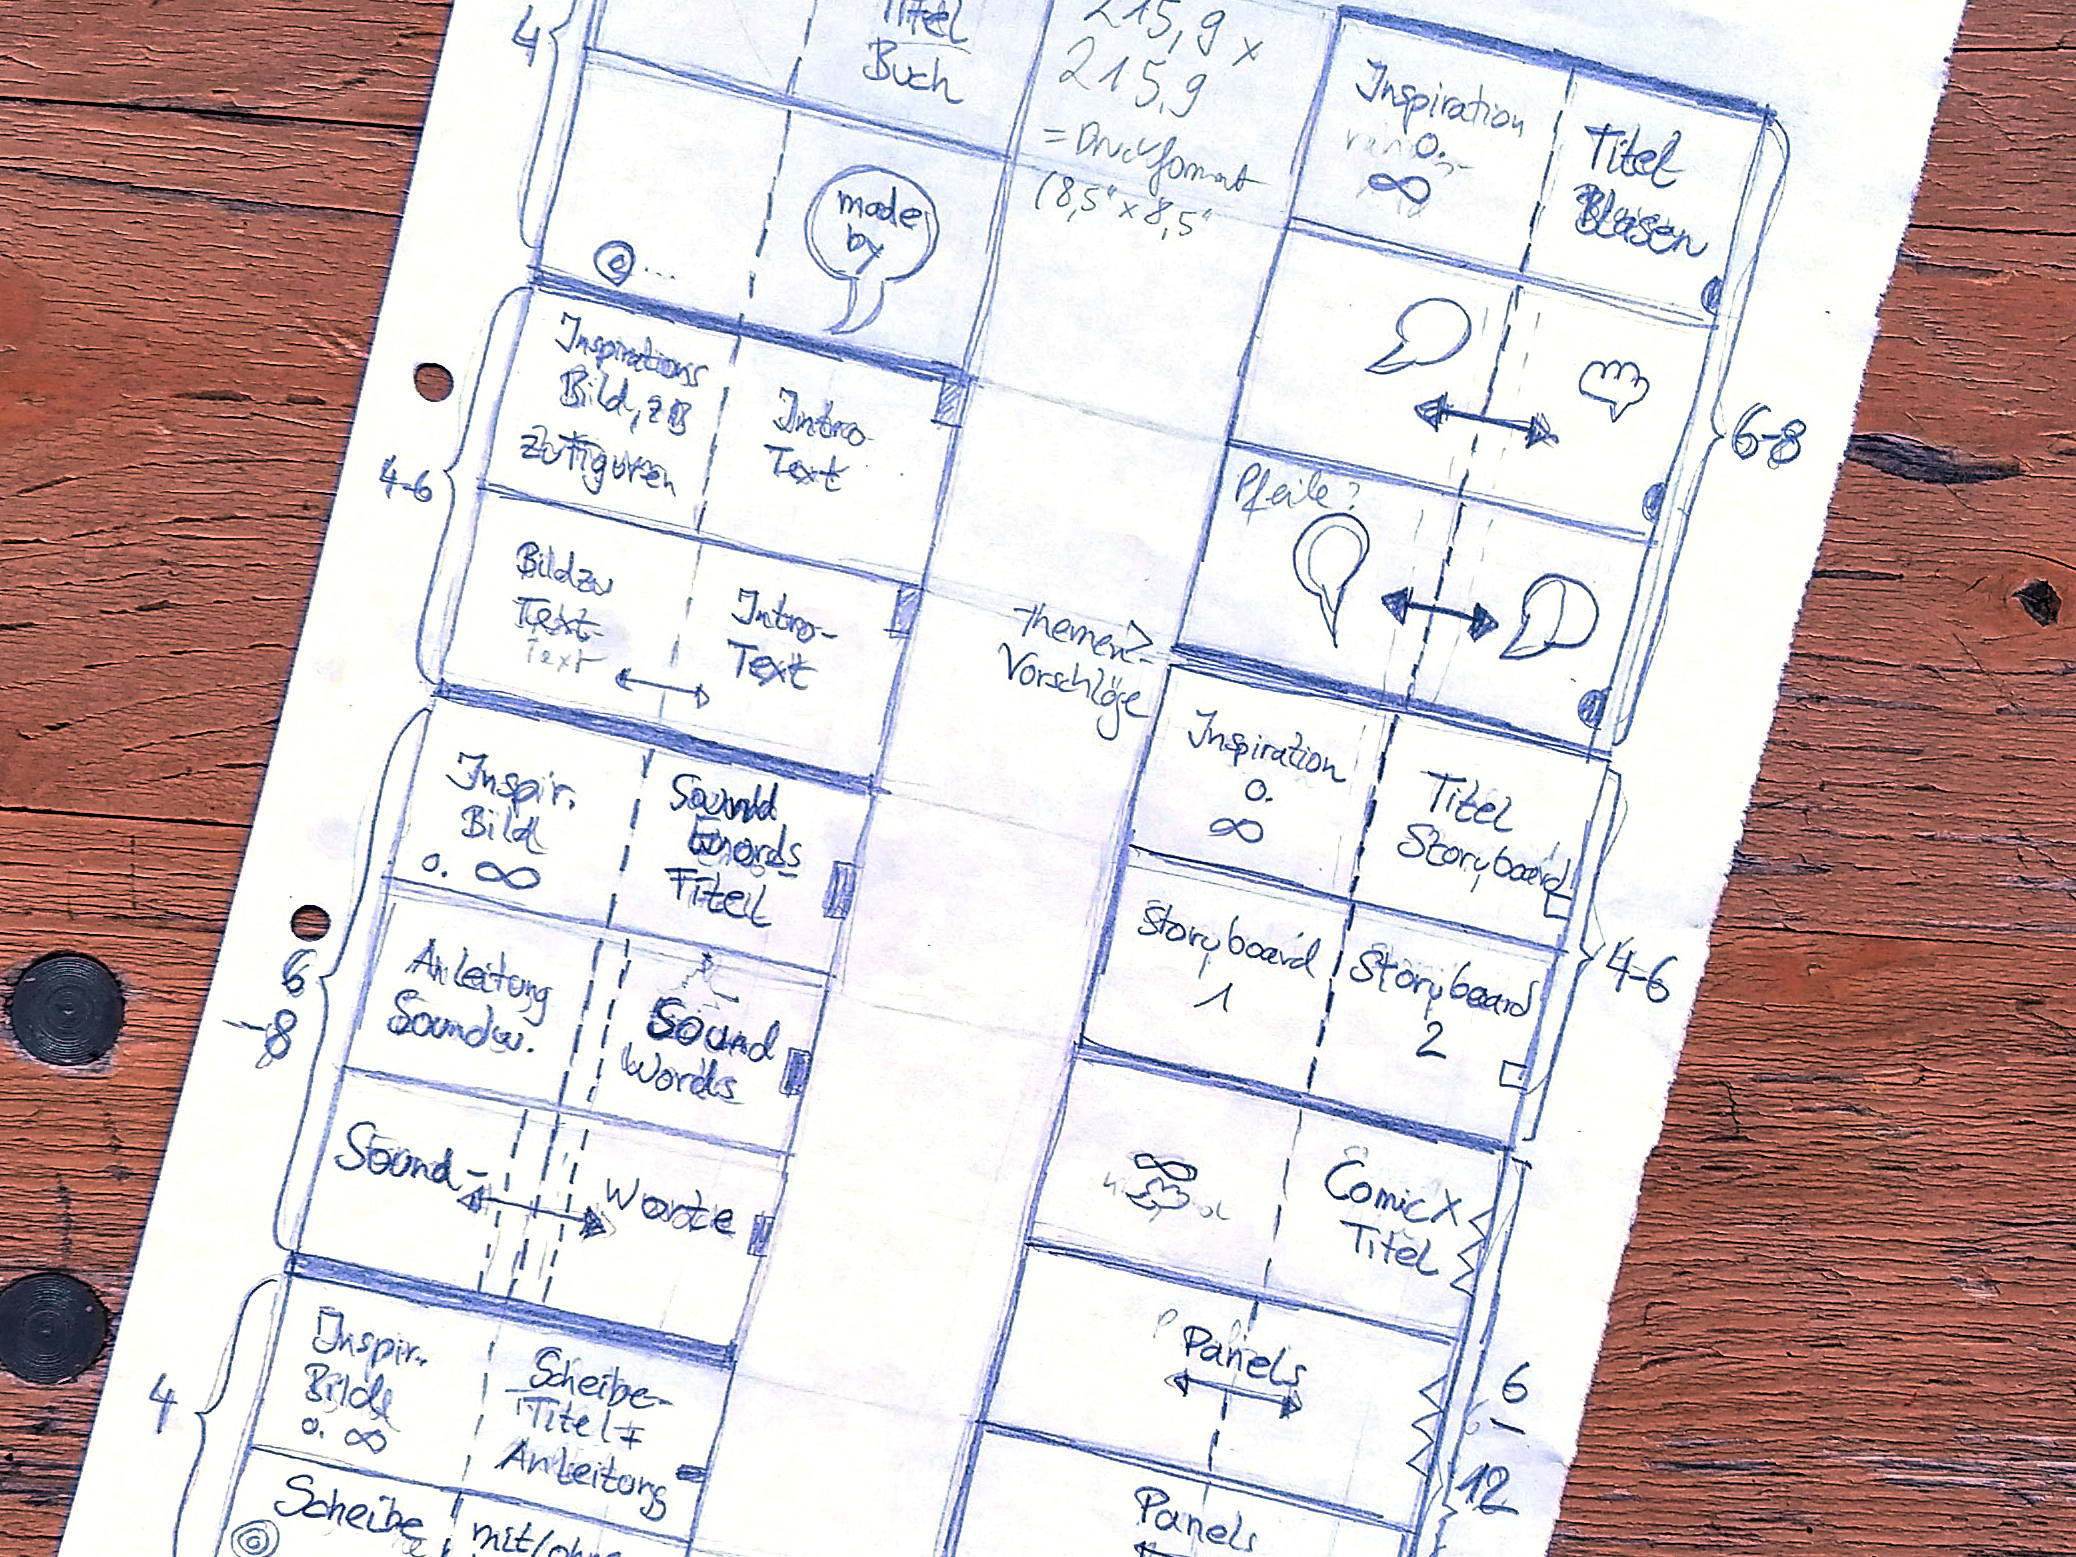 4
Titel
Buch
made
by
©...
4-6
Inspirations
Bild, zB
zu Figuren
Intro-
Text
Bild zu
Text-
Text
Intro-
Text
6
-8
Inspir.
Bild
o. ∞
Sound
words
Titel
Anleitung
Soundw.
Sound
Words
Sound-
Worte
4
Inspir.
Bild
o. ∞
Scheibe-
Titel +
Anleitung
Scheibe
mit/ohne
215,9 x
215,9
= Druckformat
(8,5" x 8,5"
Themen-
Vorschläge
Inspiration
o.
∞
Titel
Blasen
6-8
Pfeile?
Inspiration
o.
∞
Titel
Storyboard
4-6
Storyboard
1
Storyboard
2
∞
Comic X
Titel
6
-
12
Panels
Panels